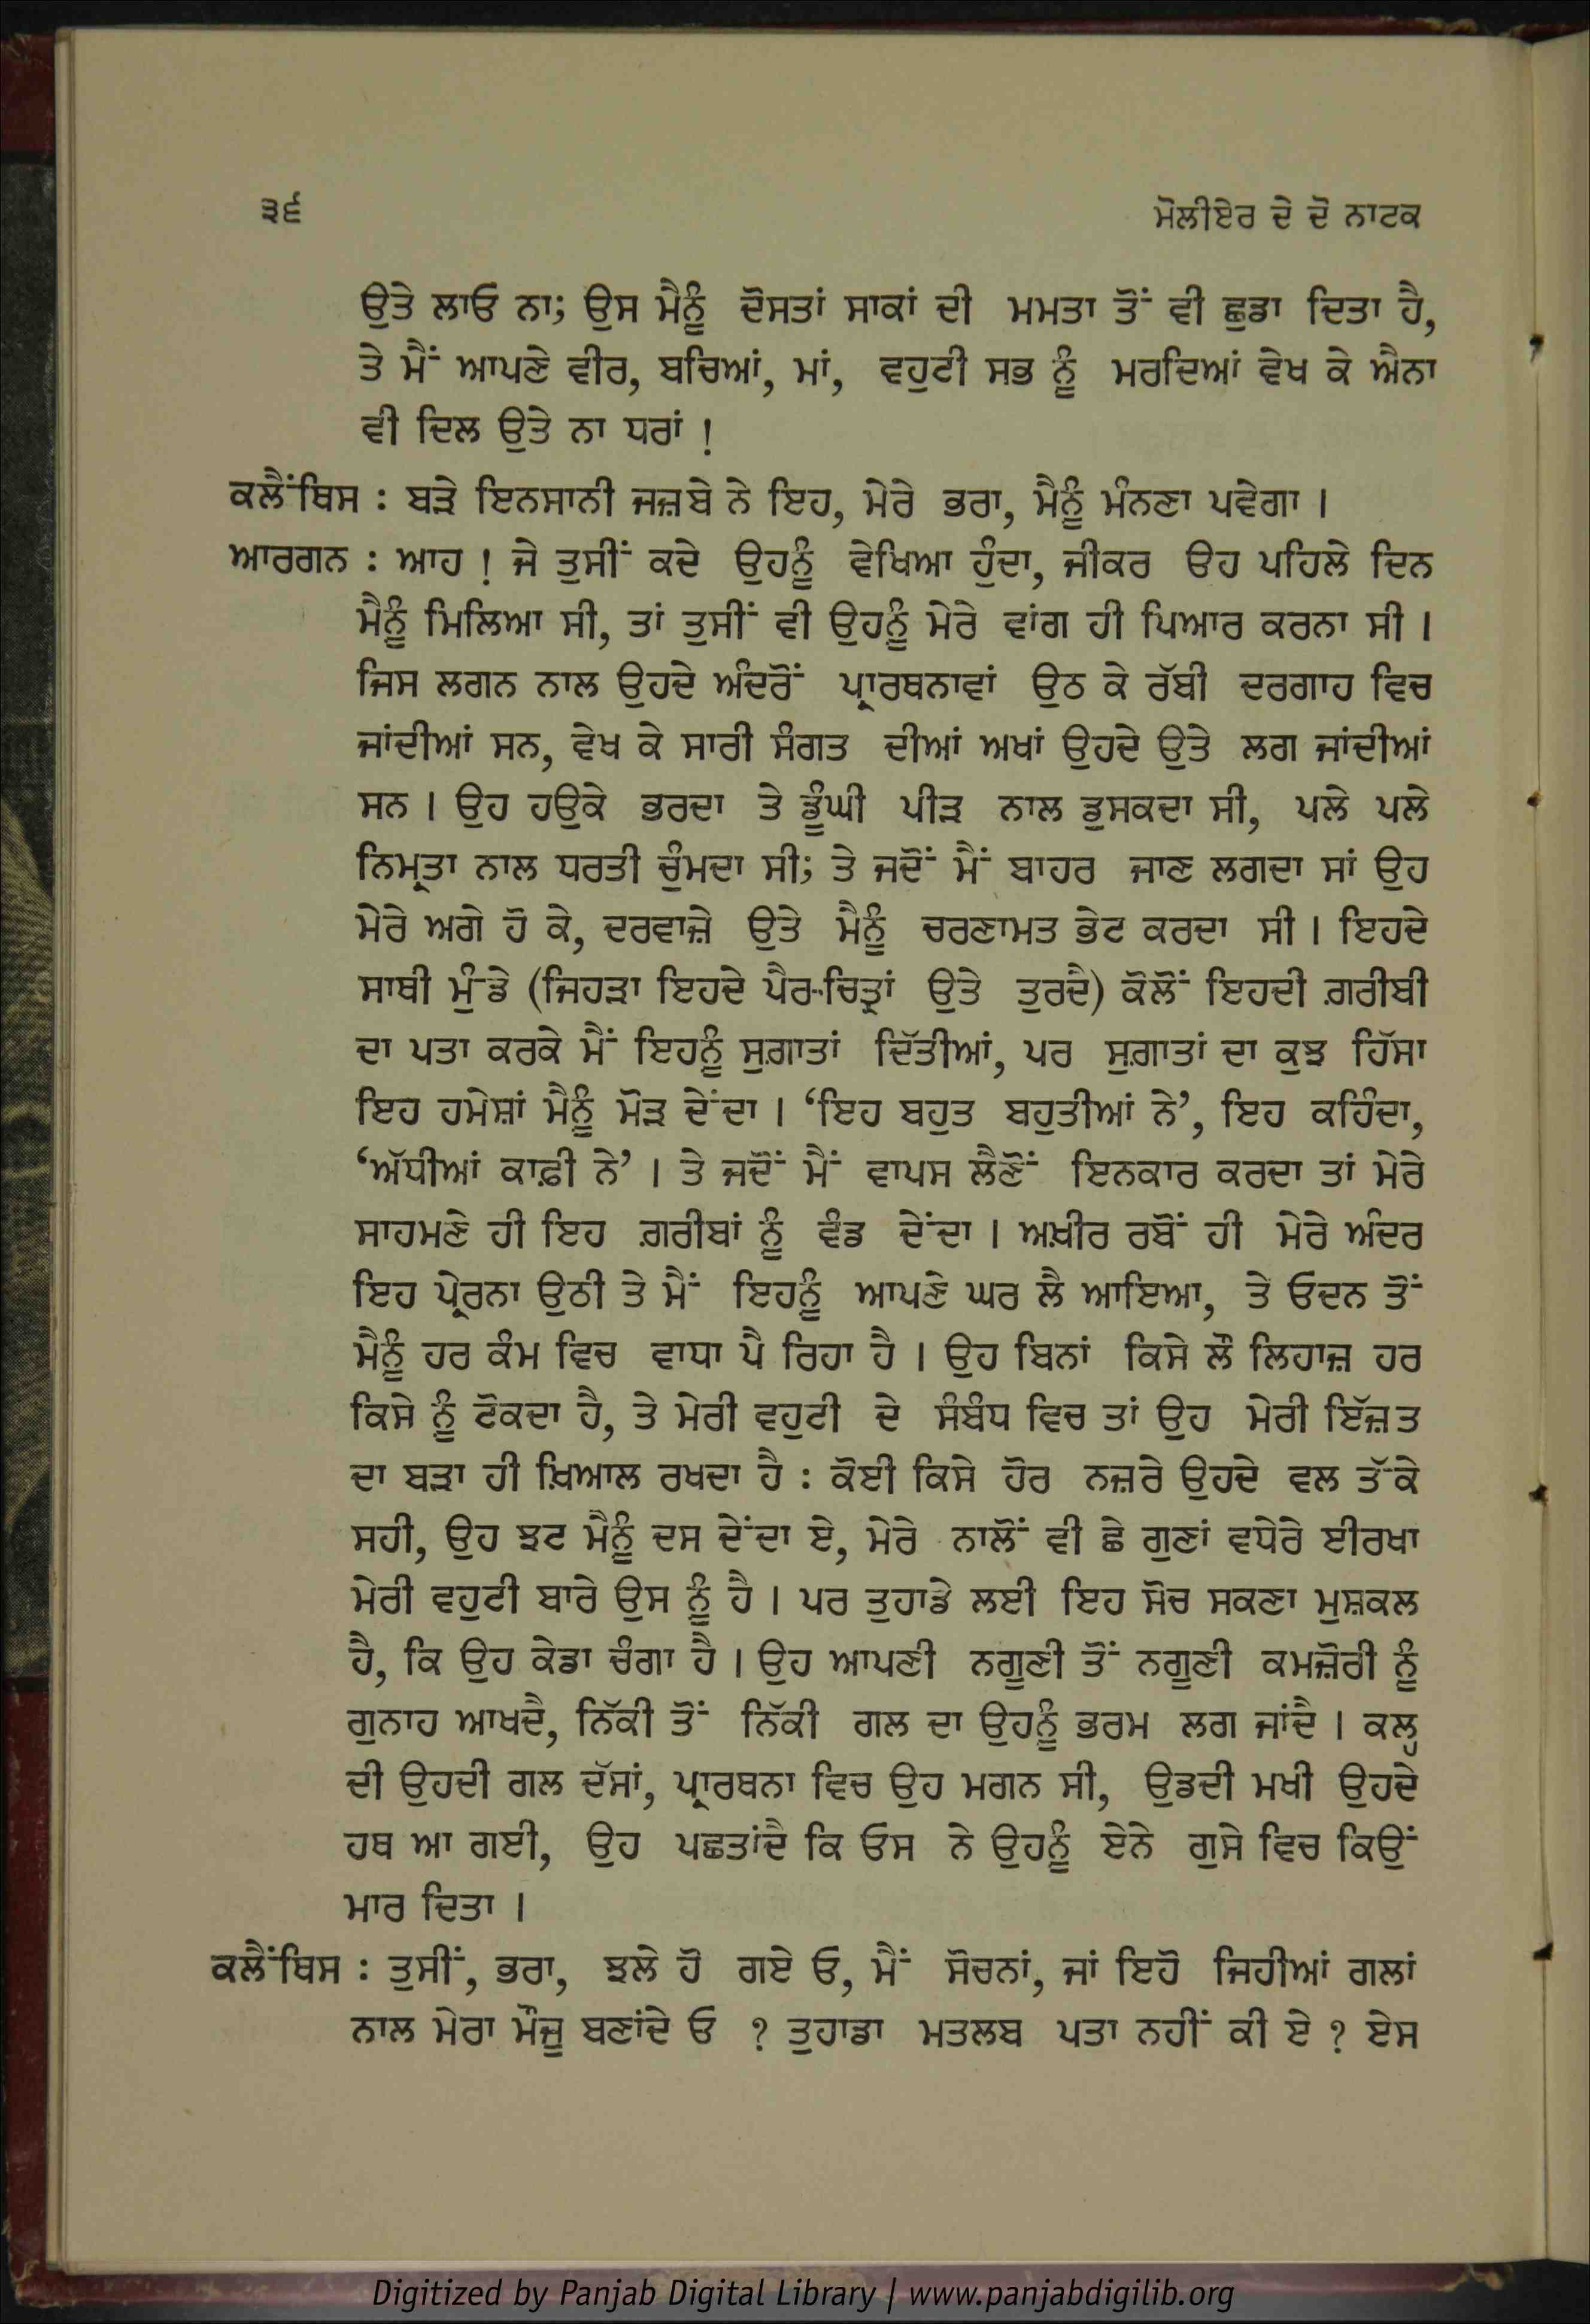 ੩੬ ਮੋਲੀਏਰ ਦੇ ਦੋ ਨਾਟਕ
ਉਤੇ ਲਾਓ ਨਾ; ਉਸ ਮੈਨੂੰ ਦੋਸਤਾਂ ਸਾਕਾਂ ਦੀ ਮਮਤਾ ਤੋਂ ਵੀ ਛੁਡਾ ਦਿਤਾ ਹੈ,
ਤੇ ਮੈਂ ਆਪਣੇ ਵੀਰ, ਬਚਿਆਂ, ਮਾਂ, ਵਹੁਟੀ ਸਭ ਨੂੰ ਮਰਦਿਆਂ ਵੇਖ ਕੇ ਐਨਾ
ਵੀ ਦਿਲ ਉਤੇ ਨਾ ਧਰਾਂ !
ਕਲੈਂਥਿਸ : ਬੜੇ ਇਨਸਾਨੀ ਜਜ਼ਬੇ ਨੇ ਇਹ, ਮੇਰੇ ਭਰਾ, ਮੈਨੂੰ ਮੰਨਣਾ ਪਵੇਗਾ ।
ਆਰਗਨ : ਆਹ ! ਜੇ ਤੁਸੀਂ ਕਦੇ ਉਹਨੂੰ ਵੇਖਿਆ ਹੁੰਦਾ, ਜੀਕਰ ੳਹ ਪਹਿਲੇ ਦਿਨ
ਮੈਨੂੰ ਮਿਲਿਆ ਸੀ, ਤਾਂ ਤੁਸੀਂ ਵੀ ਉਹਨੂੰ ਮੇਰੇ ਵਾਂਗ ਹੀ ਪਿਆਰ ਕਰਨਾ ਸੀ ।
ਜਿਸ ਲਗਨ ਨਾਲ ਉਹਦੇ ਅੰਦਰੋਂ ਪ੍ਰਾਰਥਨਾਵਾਂ ਉਠ ਕੇ ਰੱਬੀ ਦਰਗਾਹ ਵਿਚ
ਜਾਂਦੀਆਂ ਸਨ, ਵੇਖ ਕੇ ਸਾਰੀ ਸੰਗਤ ਦੀਆਂ ਅਖਾਂ ਉਹਦੇ ਉਤੇ ਲਗ ਜਾਂਦੀਆਂ
ਸਨ । ਉਹ ਹਉਕੇ ਭਰਦਾ ਤੇ ਡੂੰਘੀ ਪੀੜ ਨਾਲ ਡੁਸਕਦਾ ਸੀ, ਪਲੇ ਪਲੇ
ਨਿਮ੍ਰਤਾ ਨਾਲ ਧਰਤੀ ਚੁੰਮਦਾ ਸੀ; ਤੇ ਜਦੋਂ ਮੈਂ ਬਾਹਰ ਜਾਣ ਲਗਦਾ ਸਾਂ ਉਹ
ਮੇਰੇ ਅਗੇ ਹੋ ਕੇ, ਦਰਵਾਜ਼ੇ ਉਤੇ ਮੈਨੂੰ ਚਰਣਾਮਤ ਭੇਟ ਕਰਦਾ ਸੀ । ਇਹਦੇ
ਸਾਥੀ ਮੁੰਡੇ (ਜਿਹੜਾ ਇਹਦੇ ਪੈਰ-ਚਿਤ੍ਰਾਂ ਉਤੇ ਤੁਰਦੈ) ਕੋਲੋਂ ਇਹਦੀ ਗ਼ਰੀਬੀ
ਦਾ ਪਤਾ ਕਰਕੇ ਮੈਂ ਇਹਨੂੰ ਸੁਗ਼ਾਤਾਂ ਦਿੱਤੀਆਂ, ਪਰ ਸੁਗ਼ਾਤਾਂ ਦਾ ਕੁਝ ਹਿੱਸਾ
ਇਹ ਹਮੇਸ਼ਾਂ ਮੈਨੂੰ ਮੋੜ ਦੇਂਦਾ । ‘ਇਹ ਬਹੁਤ ਬਹੁਤੀਆਂ ਨੇ’, ਇਹ ਕਹਿੰਦਾ,
‘ਅੱਧੀਆਂ ਕਾਫ਼ੀ ਨੇ’ । ਤੇ ਜਦੋਂ ਮੈਂ ਵਾਪਸ ਲੈਣੋਂ ਇਨਕਾਰ ਕਰਦਾ ਤਾਂ ਮੇਰੇ
ਸਾਹਮਣੇ ਹੀ ਇਹ ਗ਼ਰੀਬਾਂ ਨੂੰ ਵੰਡ ਦੇਂਦਾ । ਅਖ਼ੀਰ ਰਬੋਂ ਹੀ ਮੇਰੇ ਅੰਦਰ
ਇਹ ਪ੍ਰੇਰਨਾ ਉਠੀ ਤੇ ਮੈਂ ਇਹਨੂੰ ਆਪਣੇ ਘਰ ਲੈ ਆਇਆ, ਤੇ ਓਦਨ ਤੋਂ
ਮੈਨੂੰ ਹਰ ਕੰਮ ਵਿਚ ਵਾਧਾ ਪੈ ਰਿਹਾ ਹੈ । ਉਹ ਬਿਨਾਂ ਕਿਸੇ ਲੌ ਲਿਹਾਜ਼ ਹਰ
ਕਿਸੇ ਨੂੰ ਟੋਕਦਾ ਹੈ, ਤੇ ਮੇਰੀ ਵਹੁਟੀ ਦੇ ਸੰਬੰਧ ਵਿਚ ਤਾਂ ਉਹ ਮੇਰੀ ਇੱਜ਼ਤ
ਦਾ ਬੜਾ ਹੀ ਖ਼ਿਆਲ ਰਖਦਾ ਹੈ : ਕੋਈ ਕਿਸੇ ਹੋਰ ਨਜ਼ਰੇ ਉਹਦੇ ਵਲ ਤੱਕੇ
ਸਹੀ, ਉਹ ਝਟ ਮੈਨੂੰ ਦਸ ਦੇਂਦਾ ਏ, ਮੇਰੇ ਨਾਲੋਂ ਵੀ ਛੇ ਗੁਣਾਂ ਵਧੇਰੇ ਈਰਖਾ
ਮੇਰੀ ਵਹੁਟੀ ਬਾਰੇ ਉਸ ਨੂੰ ਹੈ । ਪਰ ਤੁਹਾਡੇ ਲਈ ਇਹ ਸੋਚ ਸਕਣਾ ਮੁਸ਼ਕਲ
ਹੈ, ਕਿ ਉਹ ਕੇਡਾ ਚੰਗਾ ਹੈ । ਉਹ ਆਪਣੀ ਨਗੂਣੀ ਤੋਂ ਨਗੂਣੀ ਕਮਜ਼ੋਰੀ ਨੂੰ
ਗੁਨਾਹ ਆਖਦੈ, ਨਿੱਕੀ ਤੋਂ ਨਿੱਕੀ ਗਲ ਦਾ ਉਹਨੂੰ ਭਰਮ ਲਗ ਜਾਂਦੈ । ਕਲ੍ਹ
ਦੀ ਉਹਦੀ ਗਲ ਦੱਸਾਂ, ਪ੍ਰਾਰਥਨਾ ਵਿਚ ਉਹ ਮਗਨ ਸੀ, ਉਡਦੀ ਮਖੀ ਉਹਦੇ
ਹਥ ਆ ਗਈ, ਉਹ ਪਛਤਾਂਦੈ ਕਿ ਓਸ ਨੇ ਉਹਨੂੰ ਏਨੇ ਗੁਸੇ ਵਿਚ ਕਿਉਂ
ਮਾਰ ਦਿਤਾ ।
ਕਲੈਂਥਿਸ : ਤੁਸੀਂ, ਭਰਾ, ਝਲੇ ਹੋ ਗਏ ਓ, ਮੈਂ ਸੋਚਨਾਂ, ਜਾਂ ਇਹੋ ਜਿਹੀਆਂ ਗਲਾਂ
ਨਾਲ ਮੇਰਾ ਮੌਜੂ ਬਣਾਂਦੇ ਓ ? ਤੁਹਾਡਾ ਮਤਲਬ ਪਤਾ ਨਹੀਂ ਕੀ ਏ ? ਏਸ
Digitized by Panjab Digital Library | www.panjabdigilib.org